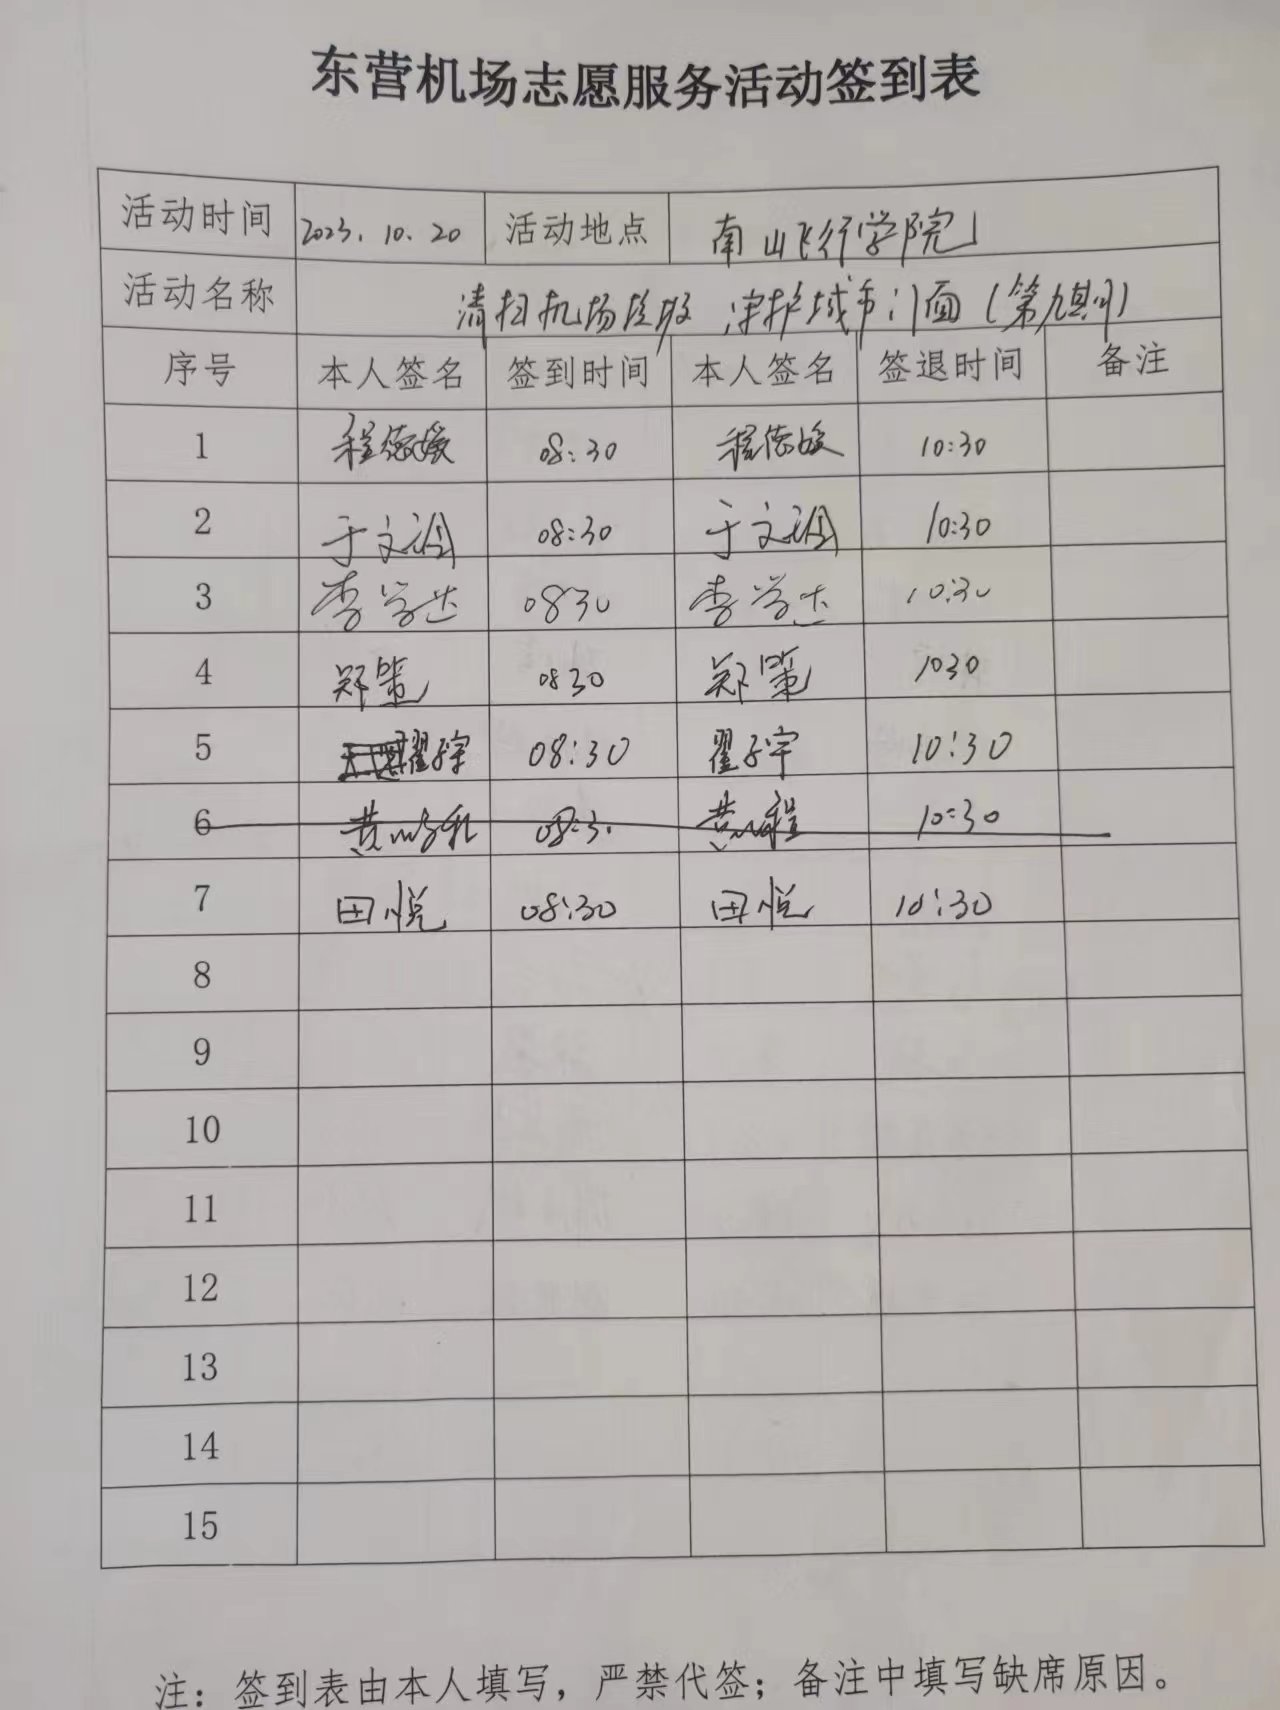 东营机场志愿服务活动签到表
活动时间 2023.10.20 活动地点 南山飞行学院
活动名称 清扫机场垃圾 守护城市门面(第九期)
序号 本人签名 签到时间 本人签名 签退时间 备注
1 程德媛 08:30 程德媛 10:30
2 于文涵 08:30 于文涵 10:30
3 李学达 0830 李学达 10:30
4 郑策 0830 郑策 1030
5 翟子宇 08:30 翟子宇 10:30
6 黄 08:3 黄 程 10:30
7 田悦 08:30 田悦 10:30
8
9
10
11
12
13
14
15
注：签到表由本人填写，严禁代签；备注中填写缺席原因。